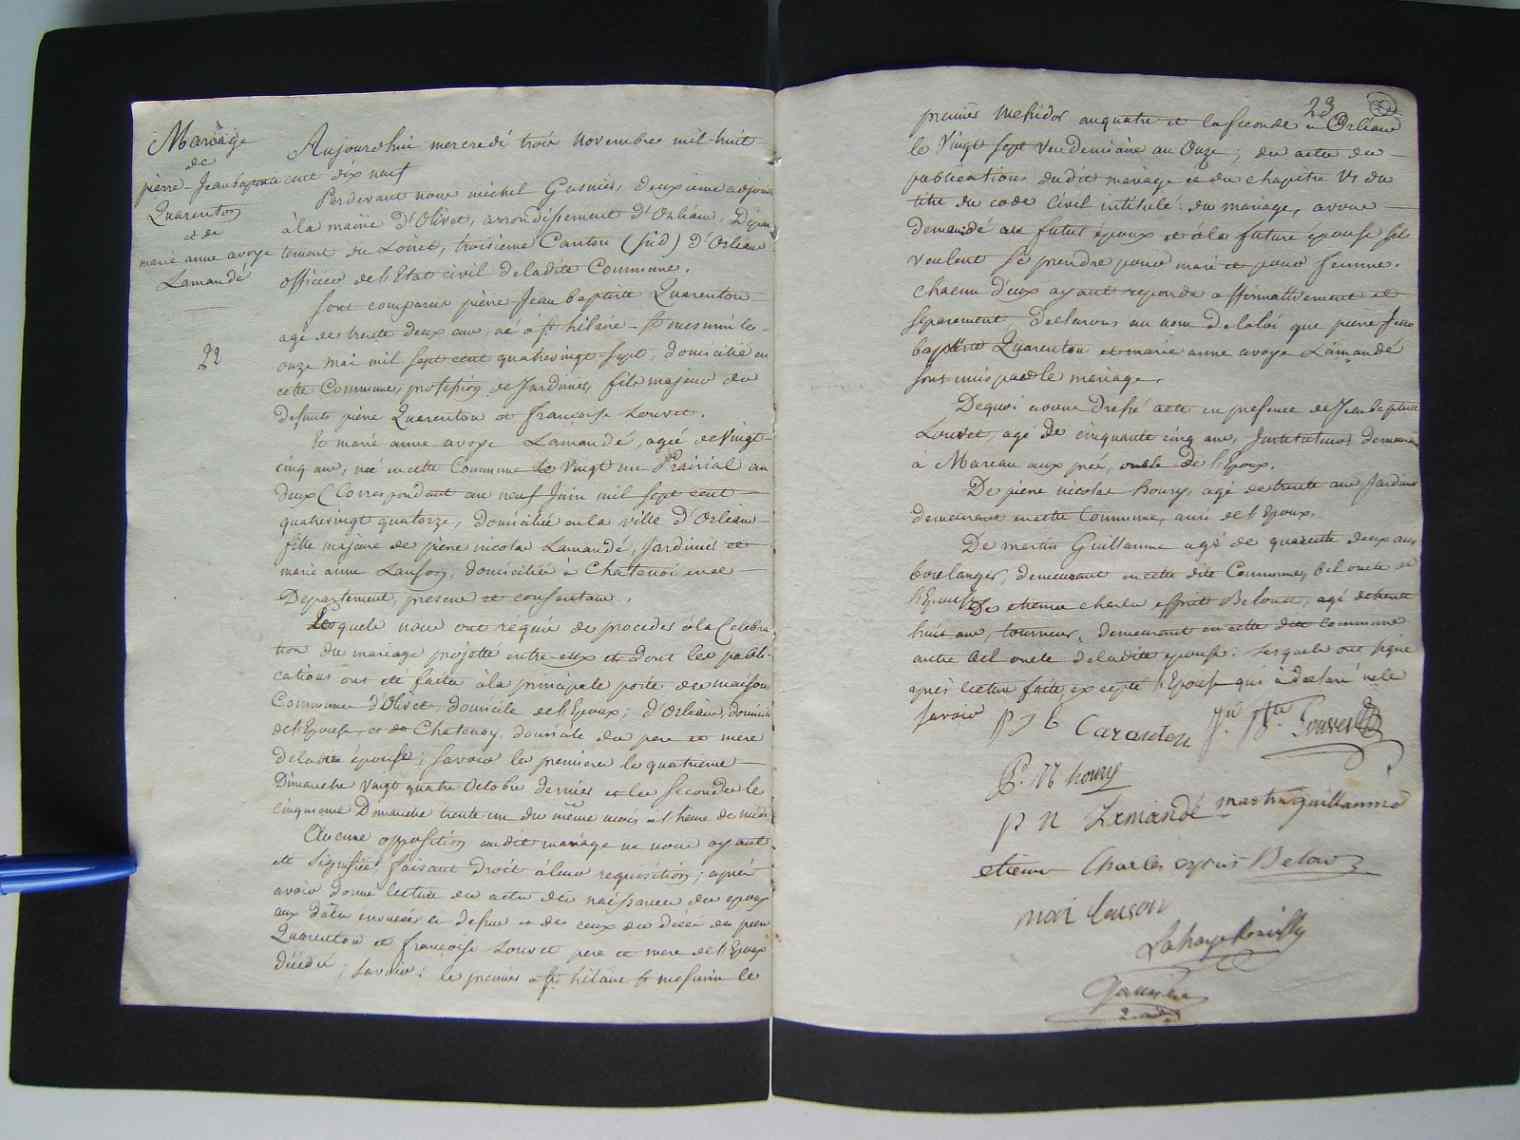 Mariage
de
pierre Jean baptiste
Quarenton
et de
marie anne avoye
Lamandé
22
Aujourdhui mercredi trois Novembre mil huit
cent dix neuf
Pardevant nous michel Gusnier, deuxieme adjoint
à la mairie d'Olivet, arrondissement d'Orléans, Dépar
tement du Loiret, troisieme Canton (sud) d'Orléans
officier de l'Etat civil de ladite Commune.
Sont comparus pierre Jean baptiste Quarenton
agé de trente deux ans, né à St hilaire St mesmin le
onze mai mil sept cent quatrevingt sept, domicilié en
cette Commune, profession de Jardinier, fils majeur de
defunts pierre Quarenton et françoise Louvet.
Et marie anne avoye Lamandé, agée de Vingt
cinq ans, née en cette Commune le Vingt un Prairial an
deux (Correspondant au neuf Juin mil sept cent
quatrevingt quatorze, domiciliée en la ville d'Orléans
fille majeure de pierre nicolas Lamandé, Jardinier et
marie anne Lanson, domiciliés à Chatenoi en ce
Departement, presens et consentans.
Lesquels nous ont requis de proceder à la Celebra
tion du mariage projetté entre eux et dont les publi
cations ont été faites à la principale porte des maisons
Commune d'Olivet, domicile de l'Epoux; d'Orléans, domicile
de l'Epouse, et de Chatenoy, domicile des pere et mere
de ladite épouse; savoir les premieres le quatrieme
Dimanche Vingt quatre Octobre dernier et les secondes le
cinquieme Dimanche trente un du même mois à l'heure de midi
Aucune opposition audit mariage ne nous ayant
été signifiée; faisant droit à leur requisition; après
avoir donné lecture des actes de naissance des epoux
aux dates enoncées ci dessus et de ceux de décès des pierre
Quarenton et françoise Louvet pere et mere de l'Epoux
décédés; savoir: le premier à St hilaire St mesmin le
23
premier Messidor an quatre et la seconde à Orléans
le Vingt sept Vendemiaire an Onze; des actes de
publications dudit mariage et du chapitre VI du
titre du code Civil intitulé: du mariage, avons
demandé au futur époux et à la future épouse s'ils
veulent se prendre pour mari et pour femme.
Chacun d'eux ayant repondu affirmativement et
separement, declarons au nom de la loi que pierre Jean
baptiste Quarenton et marie anne avoye Lamandé
sont unis par le mariage.
De quoi avons dressé acte en presence de Jean baptiste
Louvet, agé de cinquante cinq ans, Instituteur demeurant
à Mareau aux prés, oncle de l'Epoux.
De pierre nicolas houry, agé de trente ans Jardinier
demeurant en cette Commune, ami de l'Epoux.
De martin Guillaume agé de quarente deux ans
boulanger, demeurant en cette dite Commune, bel oncle de
l'Epouse
De etienne charles esprit Belouet, agé de trente
huit ans, tourneur, demeurant en cette dite commune
autre bel oncle de ladite épouse: lesquels ont signé
après lecture faite, excepté l'Epouse qui a declaré ne le
savoir
P J b Caranton Jn Bte Louvet
P. N houry
P N Lemandé martin guillaumé
etienne Charles esprit Belou
Gusnier